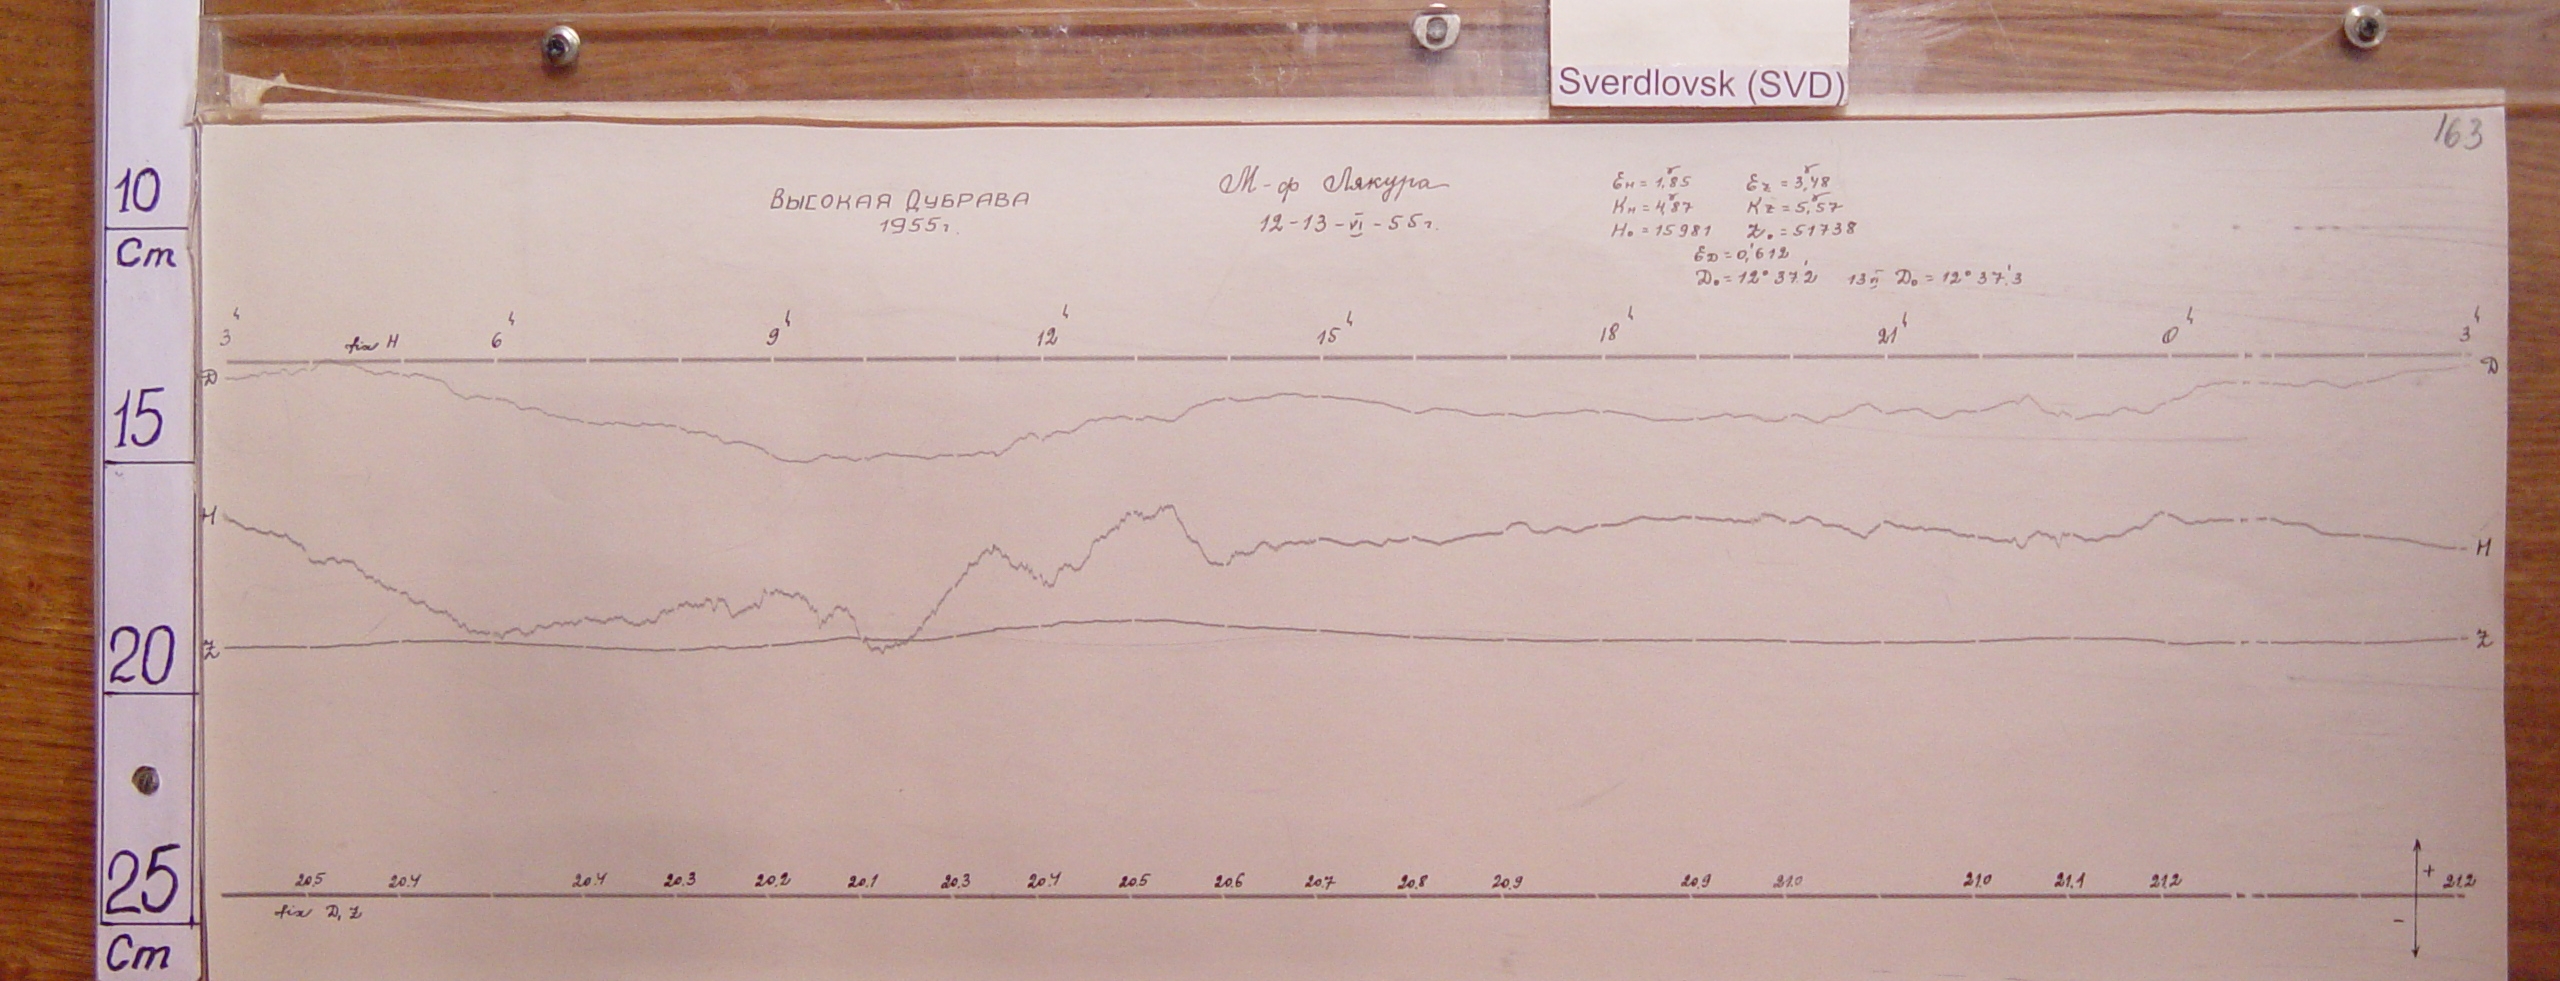 Sverdlovsk (SVD)
163
10
Cm
15
20
25
Cm
ВЫСОКАЯ ДУБРАВА
1955г.
М-ф Лякура
12-13-VI-55г.
εH = 1,γ85 εz = 3,γ48
KH = 4,γ87 Kz = 5,γ57
H₀ = 15981 Z₀ = 51738
εD = 0,′612
D₀ = 12° 37.′2 13 VI D₀ = 12° 37.′3
3ч 6ч 9ч 12ч 15ч 18ч 21ч 0ч 3ч
fix H
D D
H H
Z Z
20.5 20.4 20.4 20.3 20.2 20.1 20.3 20.4 20.5 20.6 20.7 20.8 20.9 20.9 21.0 21.0 21.1 21.2 + 21.2
fix D, Z -